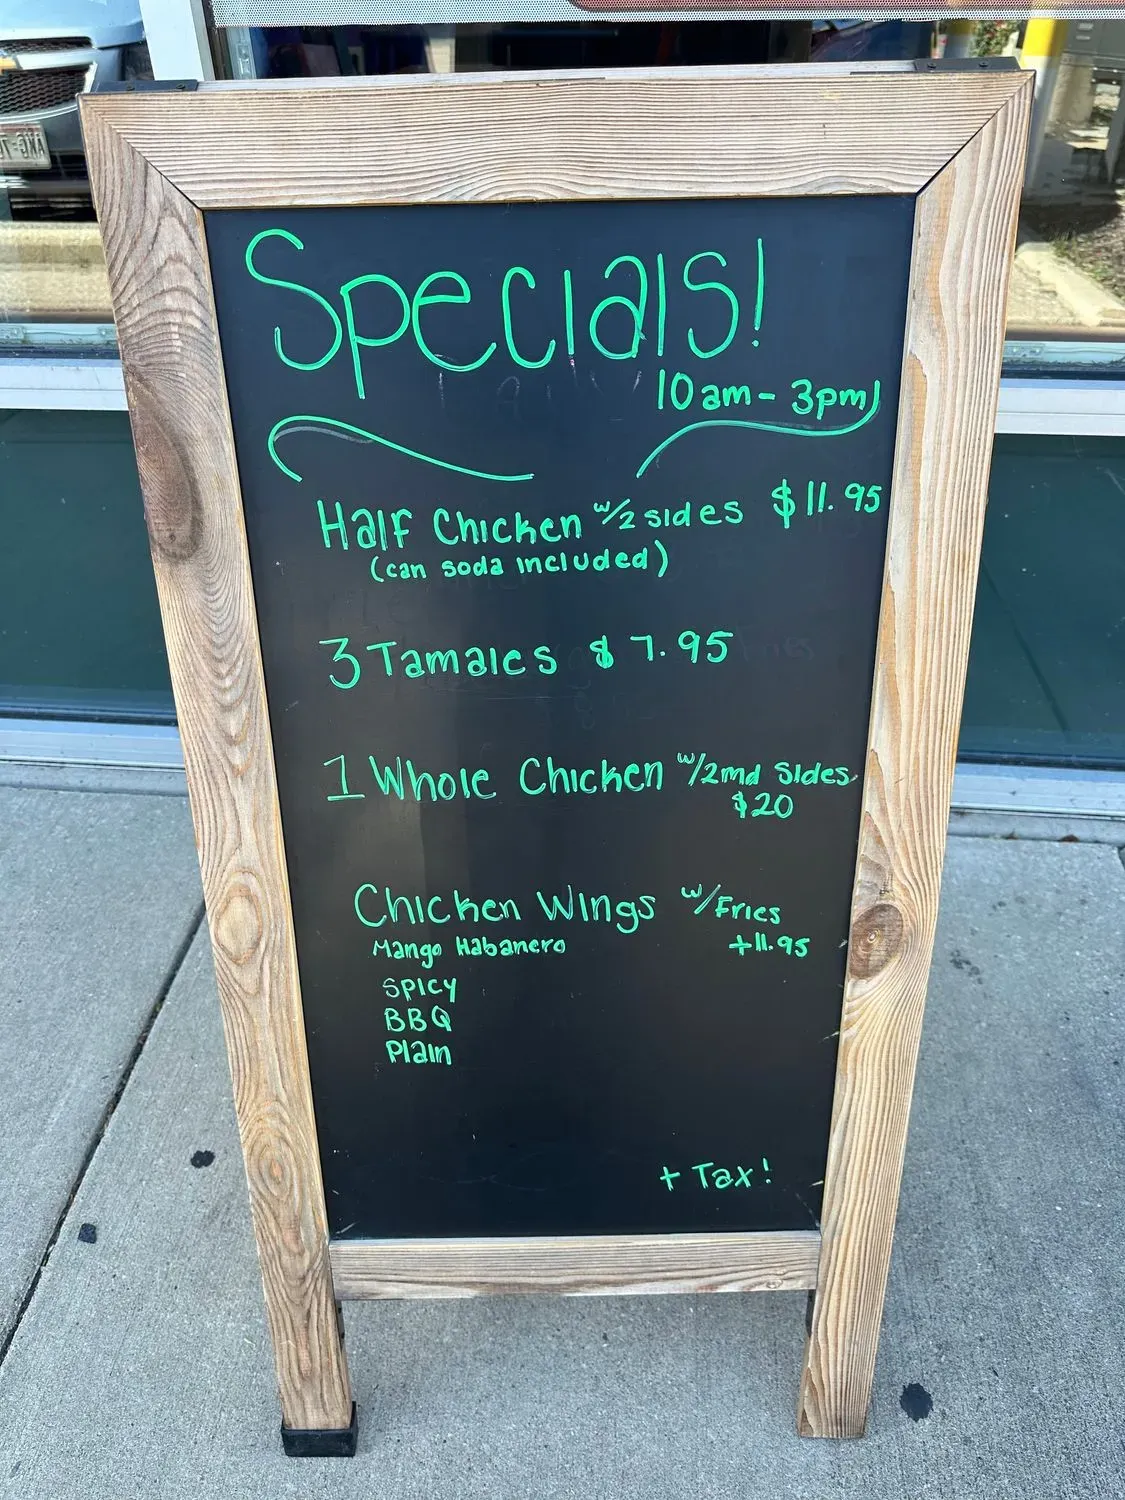 Specials!
10am - 3pm
Half Chicken w/2 sides $11.95
(can soda included)
3 Tamales $7.95
1 Whole Chicken w/2md sides
$20
Chicken Wings w/Fries
Mango Habanero +11.95
Spicy
BBQ
Plain
+ Tax!